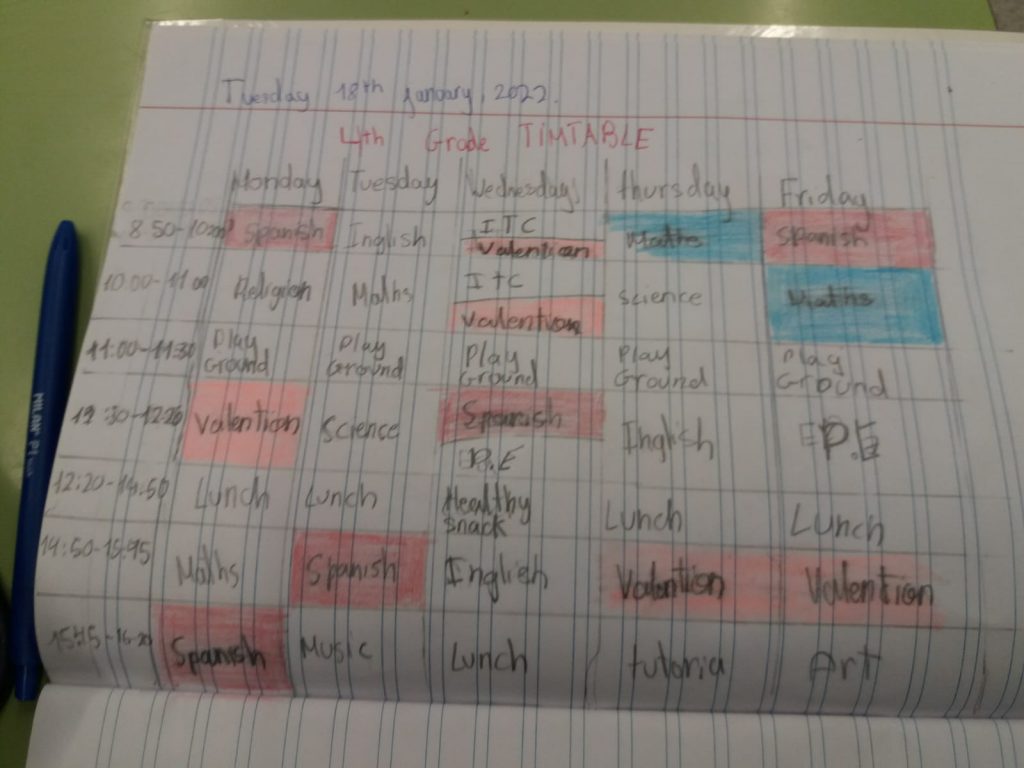 Tuesday 18th January, 2022.
4th Grade TIMTABLE
Monday Tuesday Wednesday thursday Friday
8:50-10:00 Spanish Inglish ITC Maths Spanish
Valention
10:00-11:00 Religion Maths ITC science Maths
Valention
11:00-11:30 Play Ground Play Ground Play Ground Play Ground Play Ground
Valention science Spanish Inglish P.E
P.E
12:20-14:50 Lunch Lunch Healthy snack Lunch Lunch
Maths Spanish Inglish Valention Valention
Spanish Music Lunch tutoria Art
MILAN P1